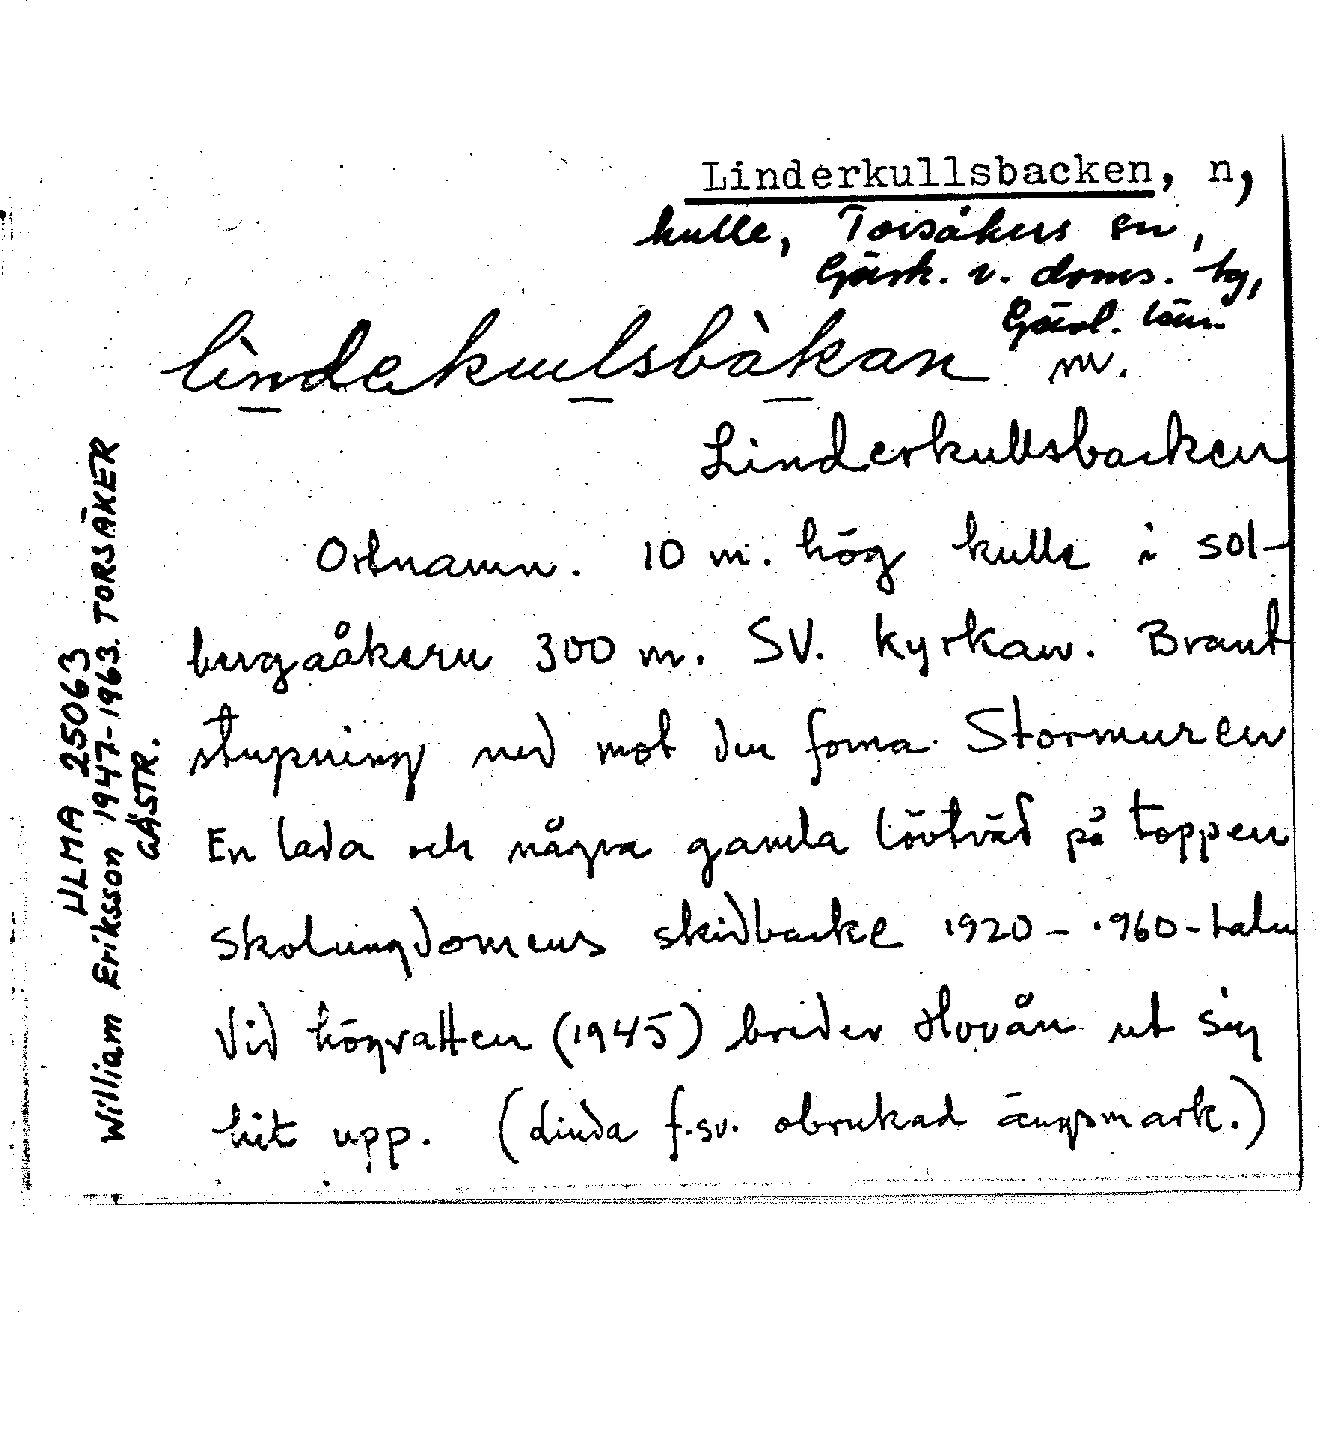 Linderkullsbacken, n,
kulle, Torsåkers sn,
Gästr. v. doms. tg,
Gävl. län.
lìndekulsbàkan m.
Linderkullsbacken
Ortnamn. 10 m. hög kulle i sol-
bergaåkern 300 m. SV. kyrkan. Brant
stupning ned mot den forna Stormuren
En lada och några gamla lövträd på toppen
Skolungdomens skidbacke 1920 - 1960-talen
Vid högvatten (1945) breder Hovån ut sig
hit upp. (Linda f.sv. obrukad ängsmark.)
ULMA 25063
William Eriksson 1947-1963. TORSÅKER
GÄSTR.